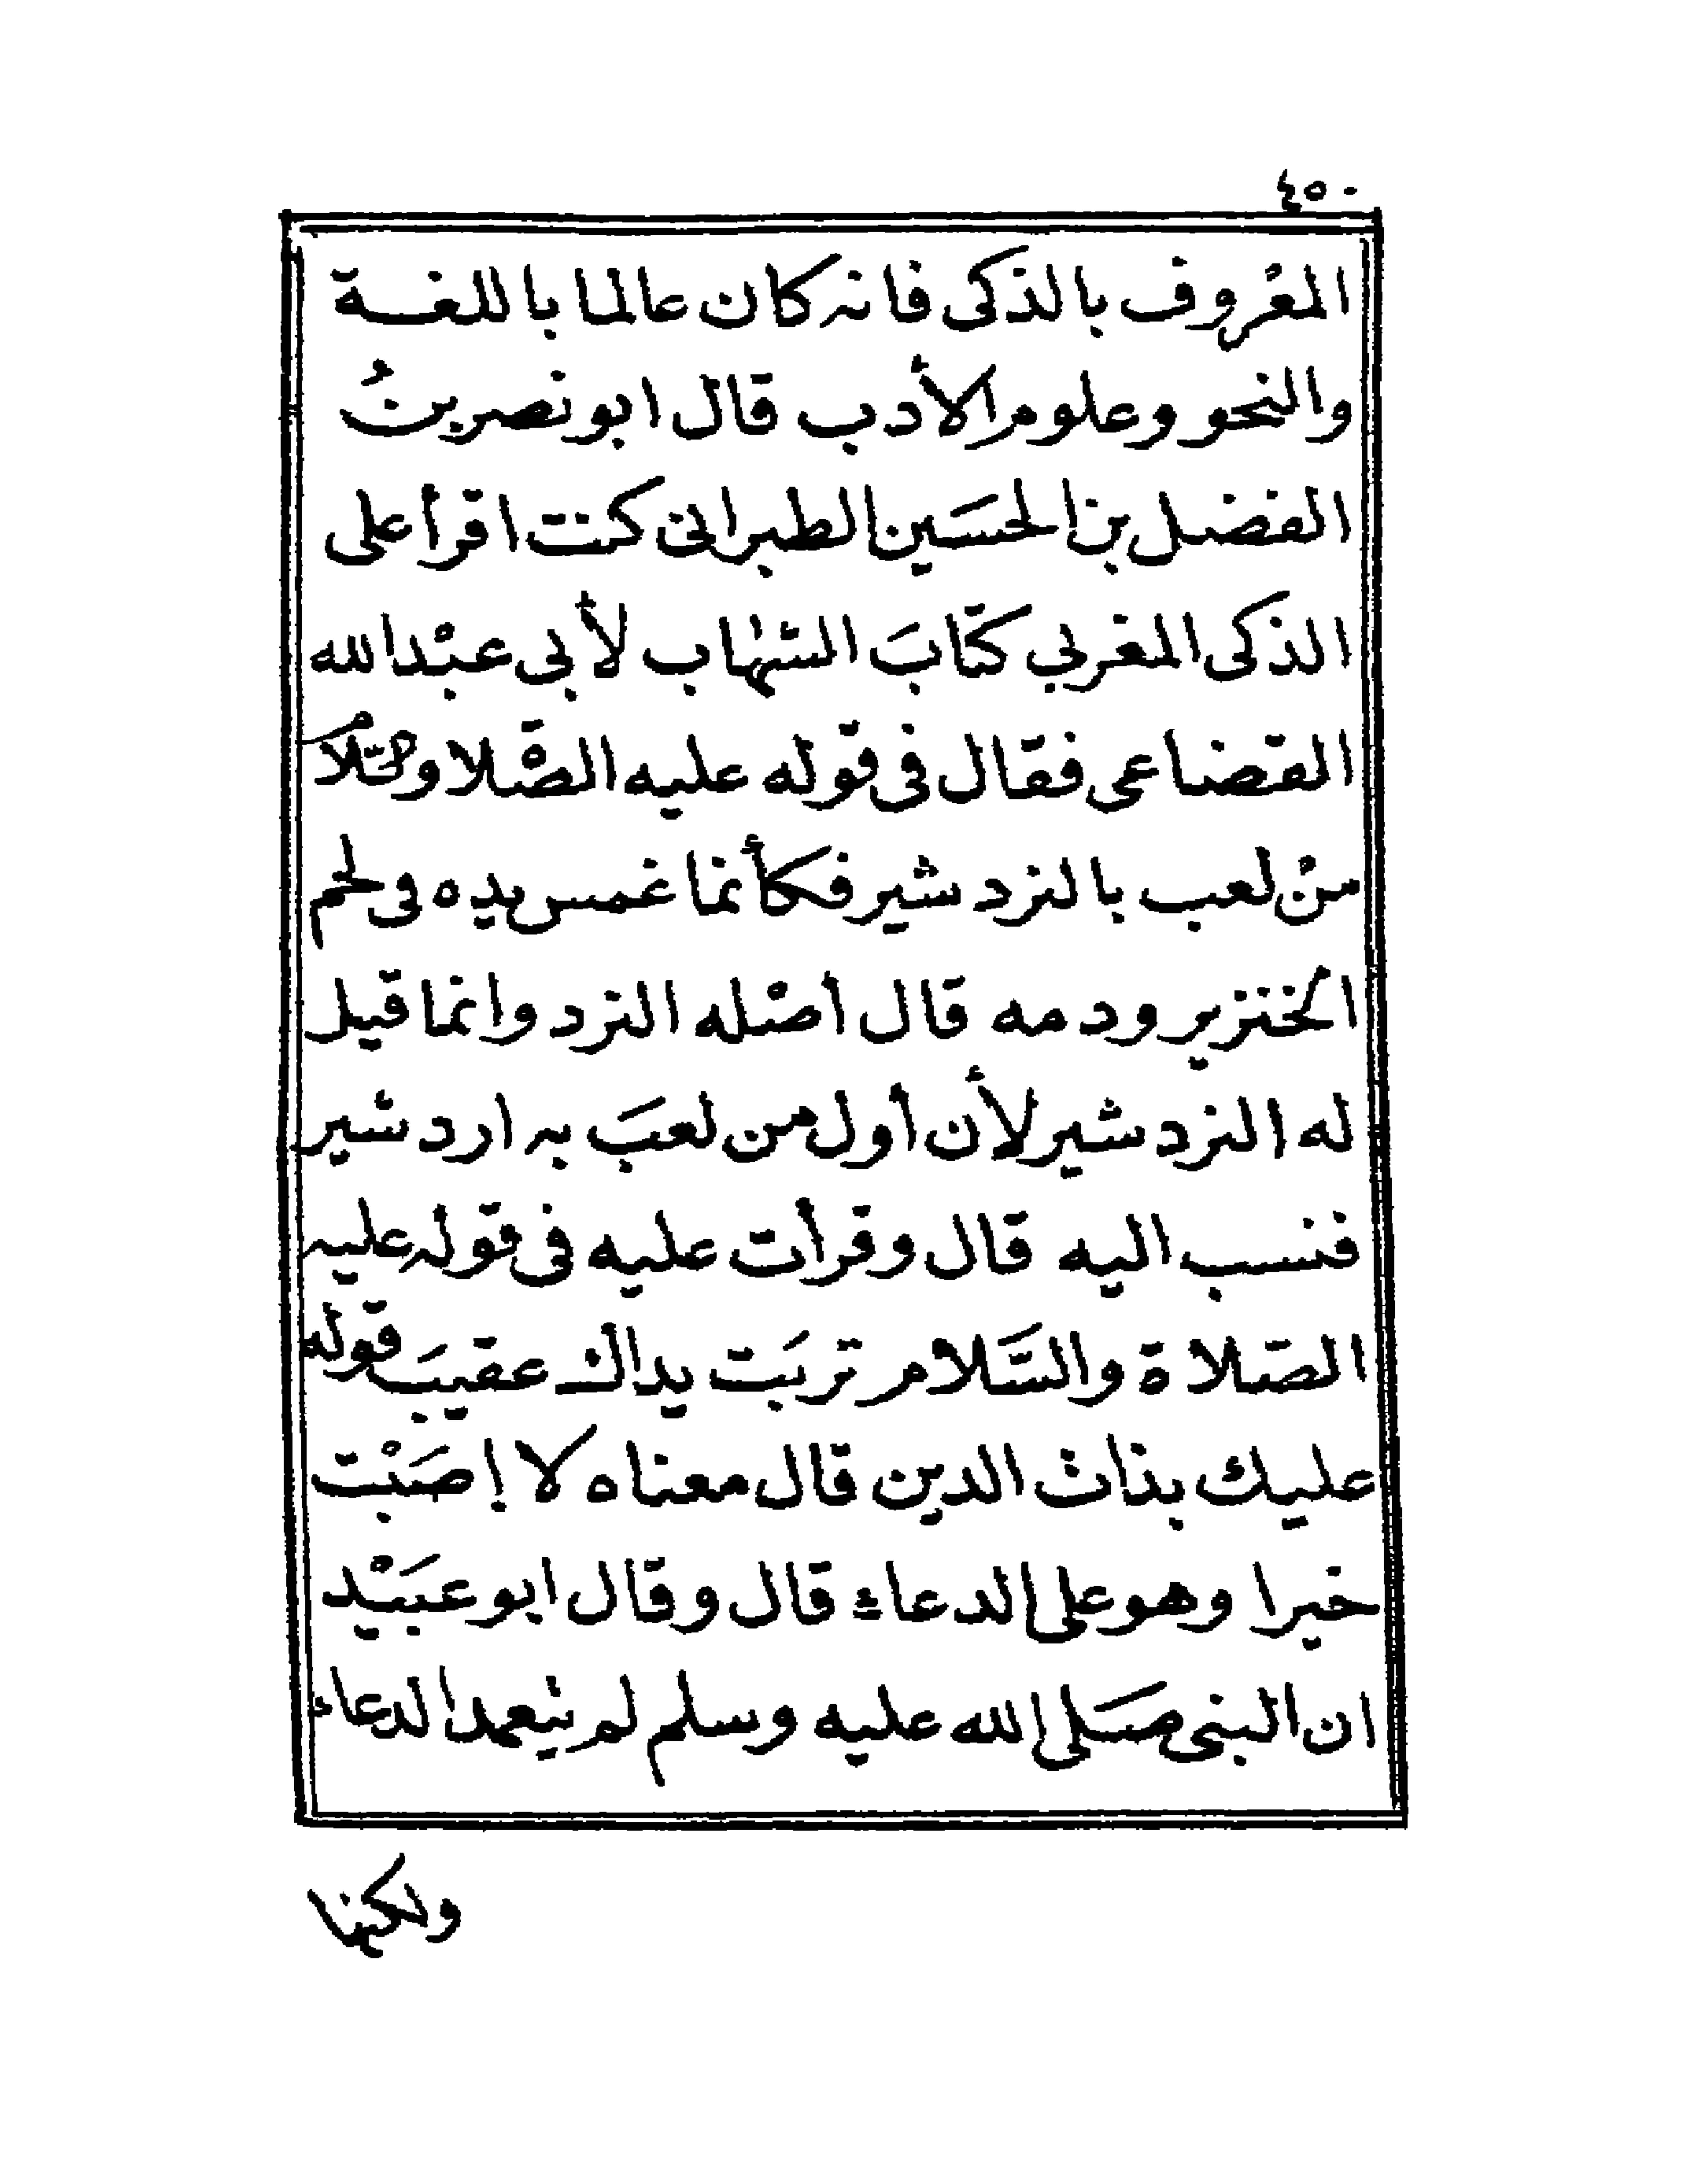 ٤٥٠
المعْروف بالذكى فانه كان عالما باللغة
والنحو وعلوم الأدب قال ابو نصر بنُ
الفضل بن الحسَين الطبرانى كنت اقرأ على
الذكى المغربي كتابَ الشهاب لأبى عبْد الله
القضاعى فقال فى قوله عليه الصّلاة والسّلام
منْ لعب بالنرد شير فكأنما غمس يده فى لحم
الخنزير ودمه قال أصْله النرد وانما قيل
له النرد شير لأن أول من لعبَ به ارد شير
فنسب اليه قال وقرأت عليه فى قوله عليه
الصّلاة والسَّلام تربَت يداك عقيبَ قوله
عليك بذات الدين قال معناه لا إصَبْت
خيرا وهو على الدعاء قال وقال ابو عبَيْد
ان النبى صَلى الله عليه وسلم لم يتعمد الدعاء
ولكنها